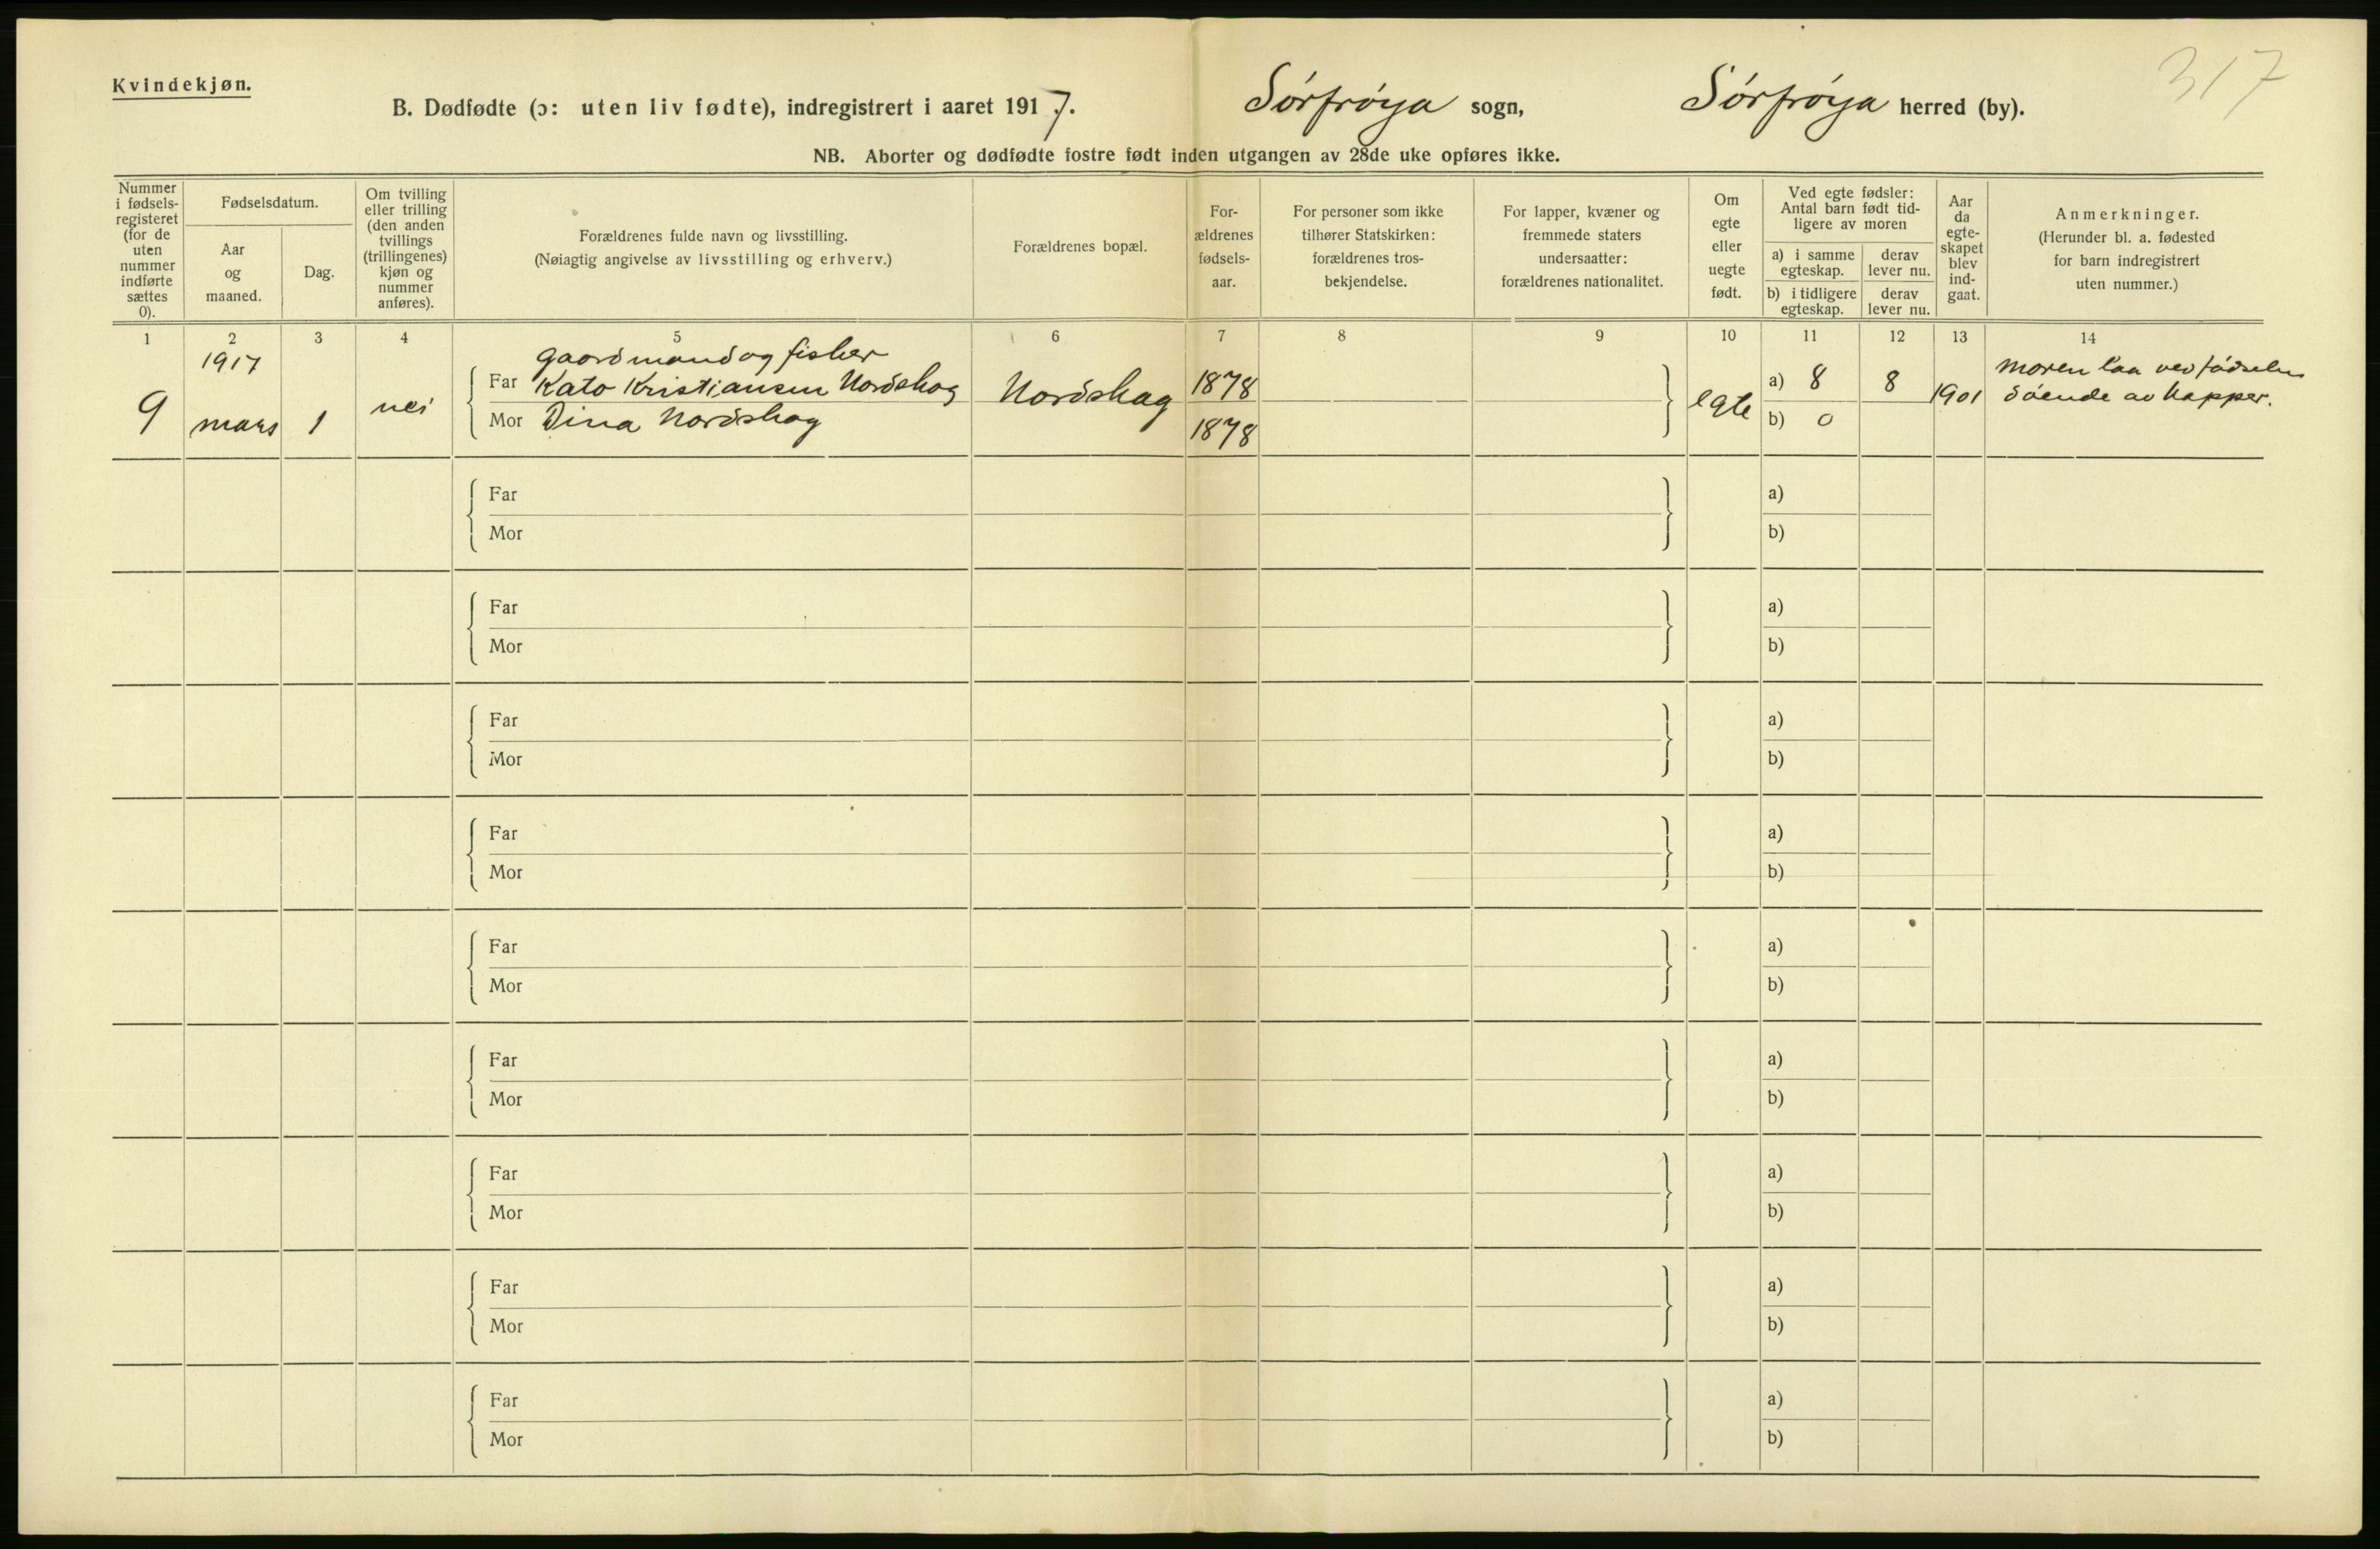 Kvindekjøn.
317
B. Dødfødte (ɔ: uten liv fødte), indregistrert i aaret 1917. Sørfrøya sogn, Sørfrøya herred (by).
NB. Aborter og dødfødte fostre født inden utgangen av 28de uke opføres ikke.
Nummer
i fødsels-
registeret
(for de
uten
nummer
indførte
sættes
0).
Fødselsdatum.
Aar
og
maaned.
Dag.
Om tvilling
eller trilling
(den anden
tvillings
(trillingenes)
kjøn og
nummer
anføres).
Forældrenes fulde navn og livsstilling.
(Nøiagtig angivelse av livsstilling og erhverv.)
Forældrenes bopæl.
For-
ældrenes
fødsels-
aar.
For personer som ikke
tilhører Statskirken:
forældrenes tros-
bekjendelse.
For lapper, kvæner og
fremmede staters
undersaatter:
forældrenes nationalitet.
Om
egte
eller
uegte
født.
Ved egte fødsler:
Antal barn født tid-
ligere av moren
a) i samme
egteskap.
derav
lever nu.
b) i tidligere
egteskap.
derav
lever nu.
Aar
da
egte-
skapet
blev
ind-
gaat.
Anmerkninger.
(Herunder bl. a. fødested
for barn indregistrert
uten nummer.)
1 2 3 4 5 6 7 8 9 10 11 12 13 14
9
1917
mars 1
nei
gaardmand og fisker
Far Kato Kristiansen Nordskag
Mor Dina Nordskag
Nordskag
1878
1878
egte
a) 8 8
b) 0
1901
Moren laa ved fødselen
døende av kopper.
Far a)
Mor b)
Far a)
Mor b)
Far a)
Mor b)
Far a)
Mor b)
Far a)
Mor b)
Far a)
Mor b)
Far a)
Mor b)
Far a)
Mor b)
Far a)
Mor b)